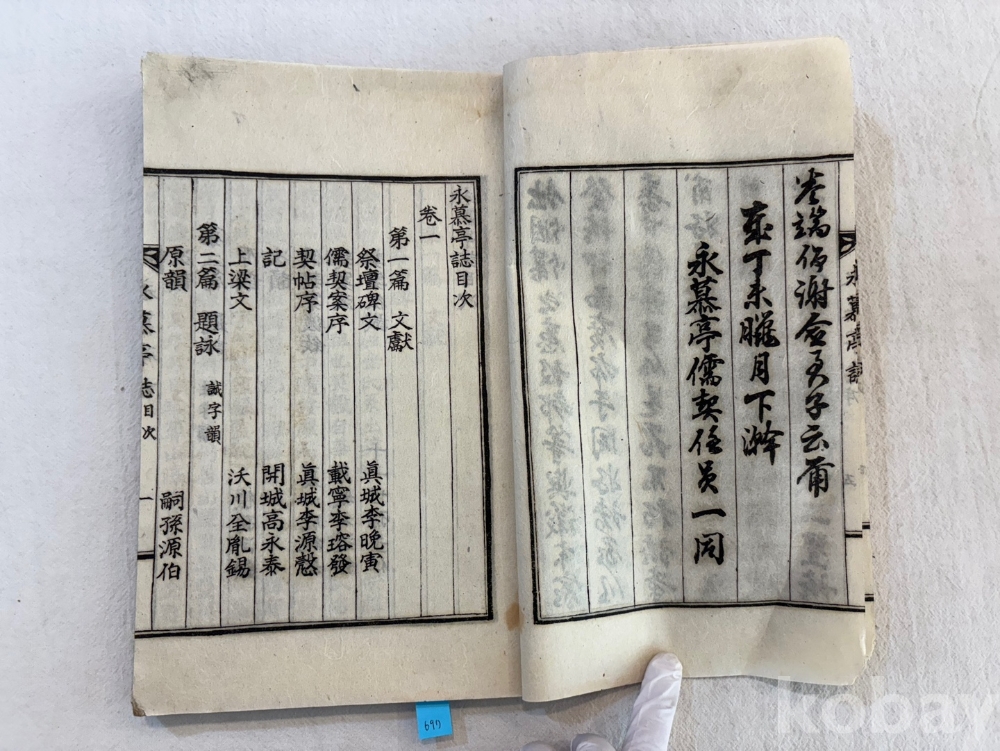 卷端仍謝僉君子云爾
歲丁未臘月下澣
永慕亭儒契任員一同
永慕亭誌
永慕亭誌目次
卷一
第一篇 文獻
祭壇碑文 眞城李晩寅
儒契案序 載寧李瑢發
契帖序 眞城李源慤
記 開城高永泰
上梁文 沃川全胤錫
第二篇 題詠 誠字韻
原韻 嗣孫源伯
永慕亭誌目次 一
697
kobay